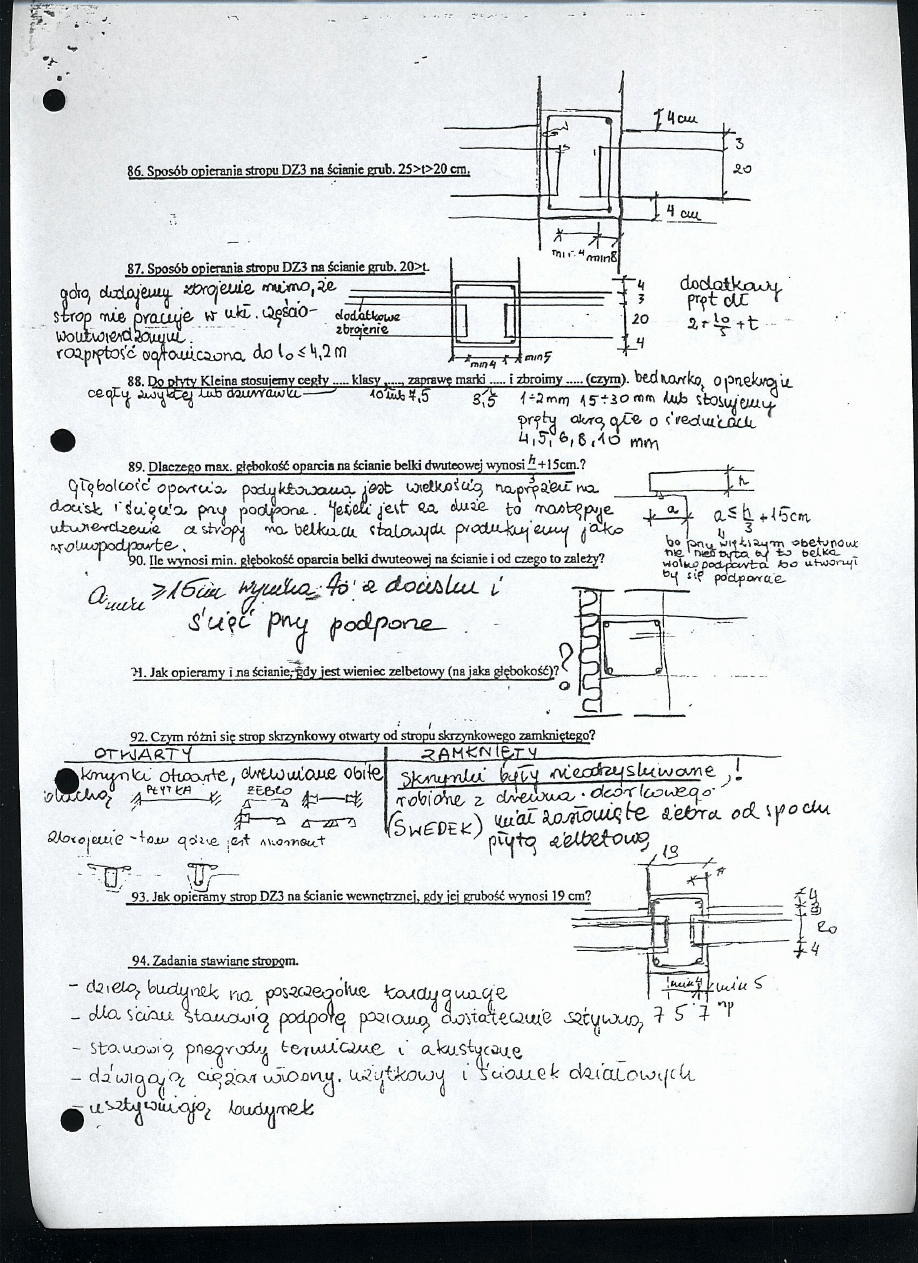 4 cm
3
20
86. Sposób opierania stropu DZ3 na ścianie grub. 25>t>20 cm.
4 cm
min. 4 min 8
87. Sposób opierania stropu DZ3 na ścianie grub. 20>t.
górą dodajemy zbrojenie mimo, że
strop nie pracuje w ukł. częścio-
woutwierdzonym.
rozpiętość ograniczona do lo ≤ 4,2 m
dodatkowe
zbrojenie
4
3
20
4
min 4 min 5
dodatkowy
pręt dł
88. Do płyty Kleina stosujemy cegły ..... klasy ....., zaprawę marki ..... i zbroimy ..... (czym). bednarką o przekroju
cegły zwykłej lub dziurawki 10 lub 7,5 8,5 1÷2mm 15÷30 mm lub stosujemy
pręty okrągłe o średnicach
4,5,6,8,10 mm
89. Dlaczego max. głębokość oparcia na ścianie belki dwuteowej wynosi h/3+15cm.?
Głębokość oparcia podyktowana jest wielkością naprężeń na
docisk i ścięcia przy podporze. Jeżeli jest za duże to następuje
utwierdzenie a stropy na belkach stalowych produkujemy jako
wolnopodparte.
h
a
a ≤ h/3 + 15cm
bo przy większym obetonow
nie byłaby to belka
wolnopodparta bo utworzył
by się podparcie
90. Ile wynosi min. głębokość oparcia belki dwuteowej na ścianie i od czego to zależy?
a min ≥ 15cm wynika to z docisku i
ścięć przy podporze
91. Jak opieramy i na ścianie, gdy jest wieniec żelbetowy (na jaka głębokość)?
?
92. Czym różni się strop skrzynkowy otwarty od stropu skrzynkowego zamkniętego?
OTWARTY
skrzynki otwarte, drewniane obite
blachą PŁYTKA ŻEBRO
zbrojenie - tam gdzie jest moment
ZAMKNIĘTY
skrzynki były nieodzyskiwane !
robione z drewna okorkowego
(SWEDEK) miał zasłonięte żebra od spodu
płytą żelbetową
93. Jak opieramy strop DZ3 na ścianie wewnętrznej, gdy jej grubość wynosi 19 cm?
19
4
3
20
4
min 4 min 5
7 5 7 np
94. Zadania stawiane stropom.
- dzielą budynek na poszczególne kondygnacje
- dla ścian stanowią podporę poziomą dostatecznie sztywną
- stanowią przegrody termiczne i akustyczne
- dźwigają ciężar własny, użytkowy i ścianek działowych
- usztywniają budynek